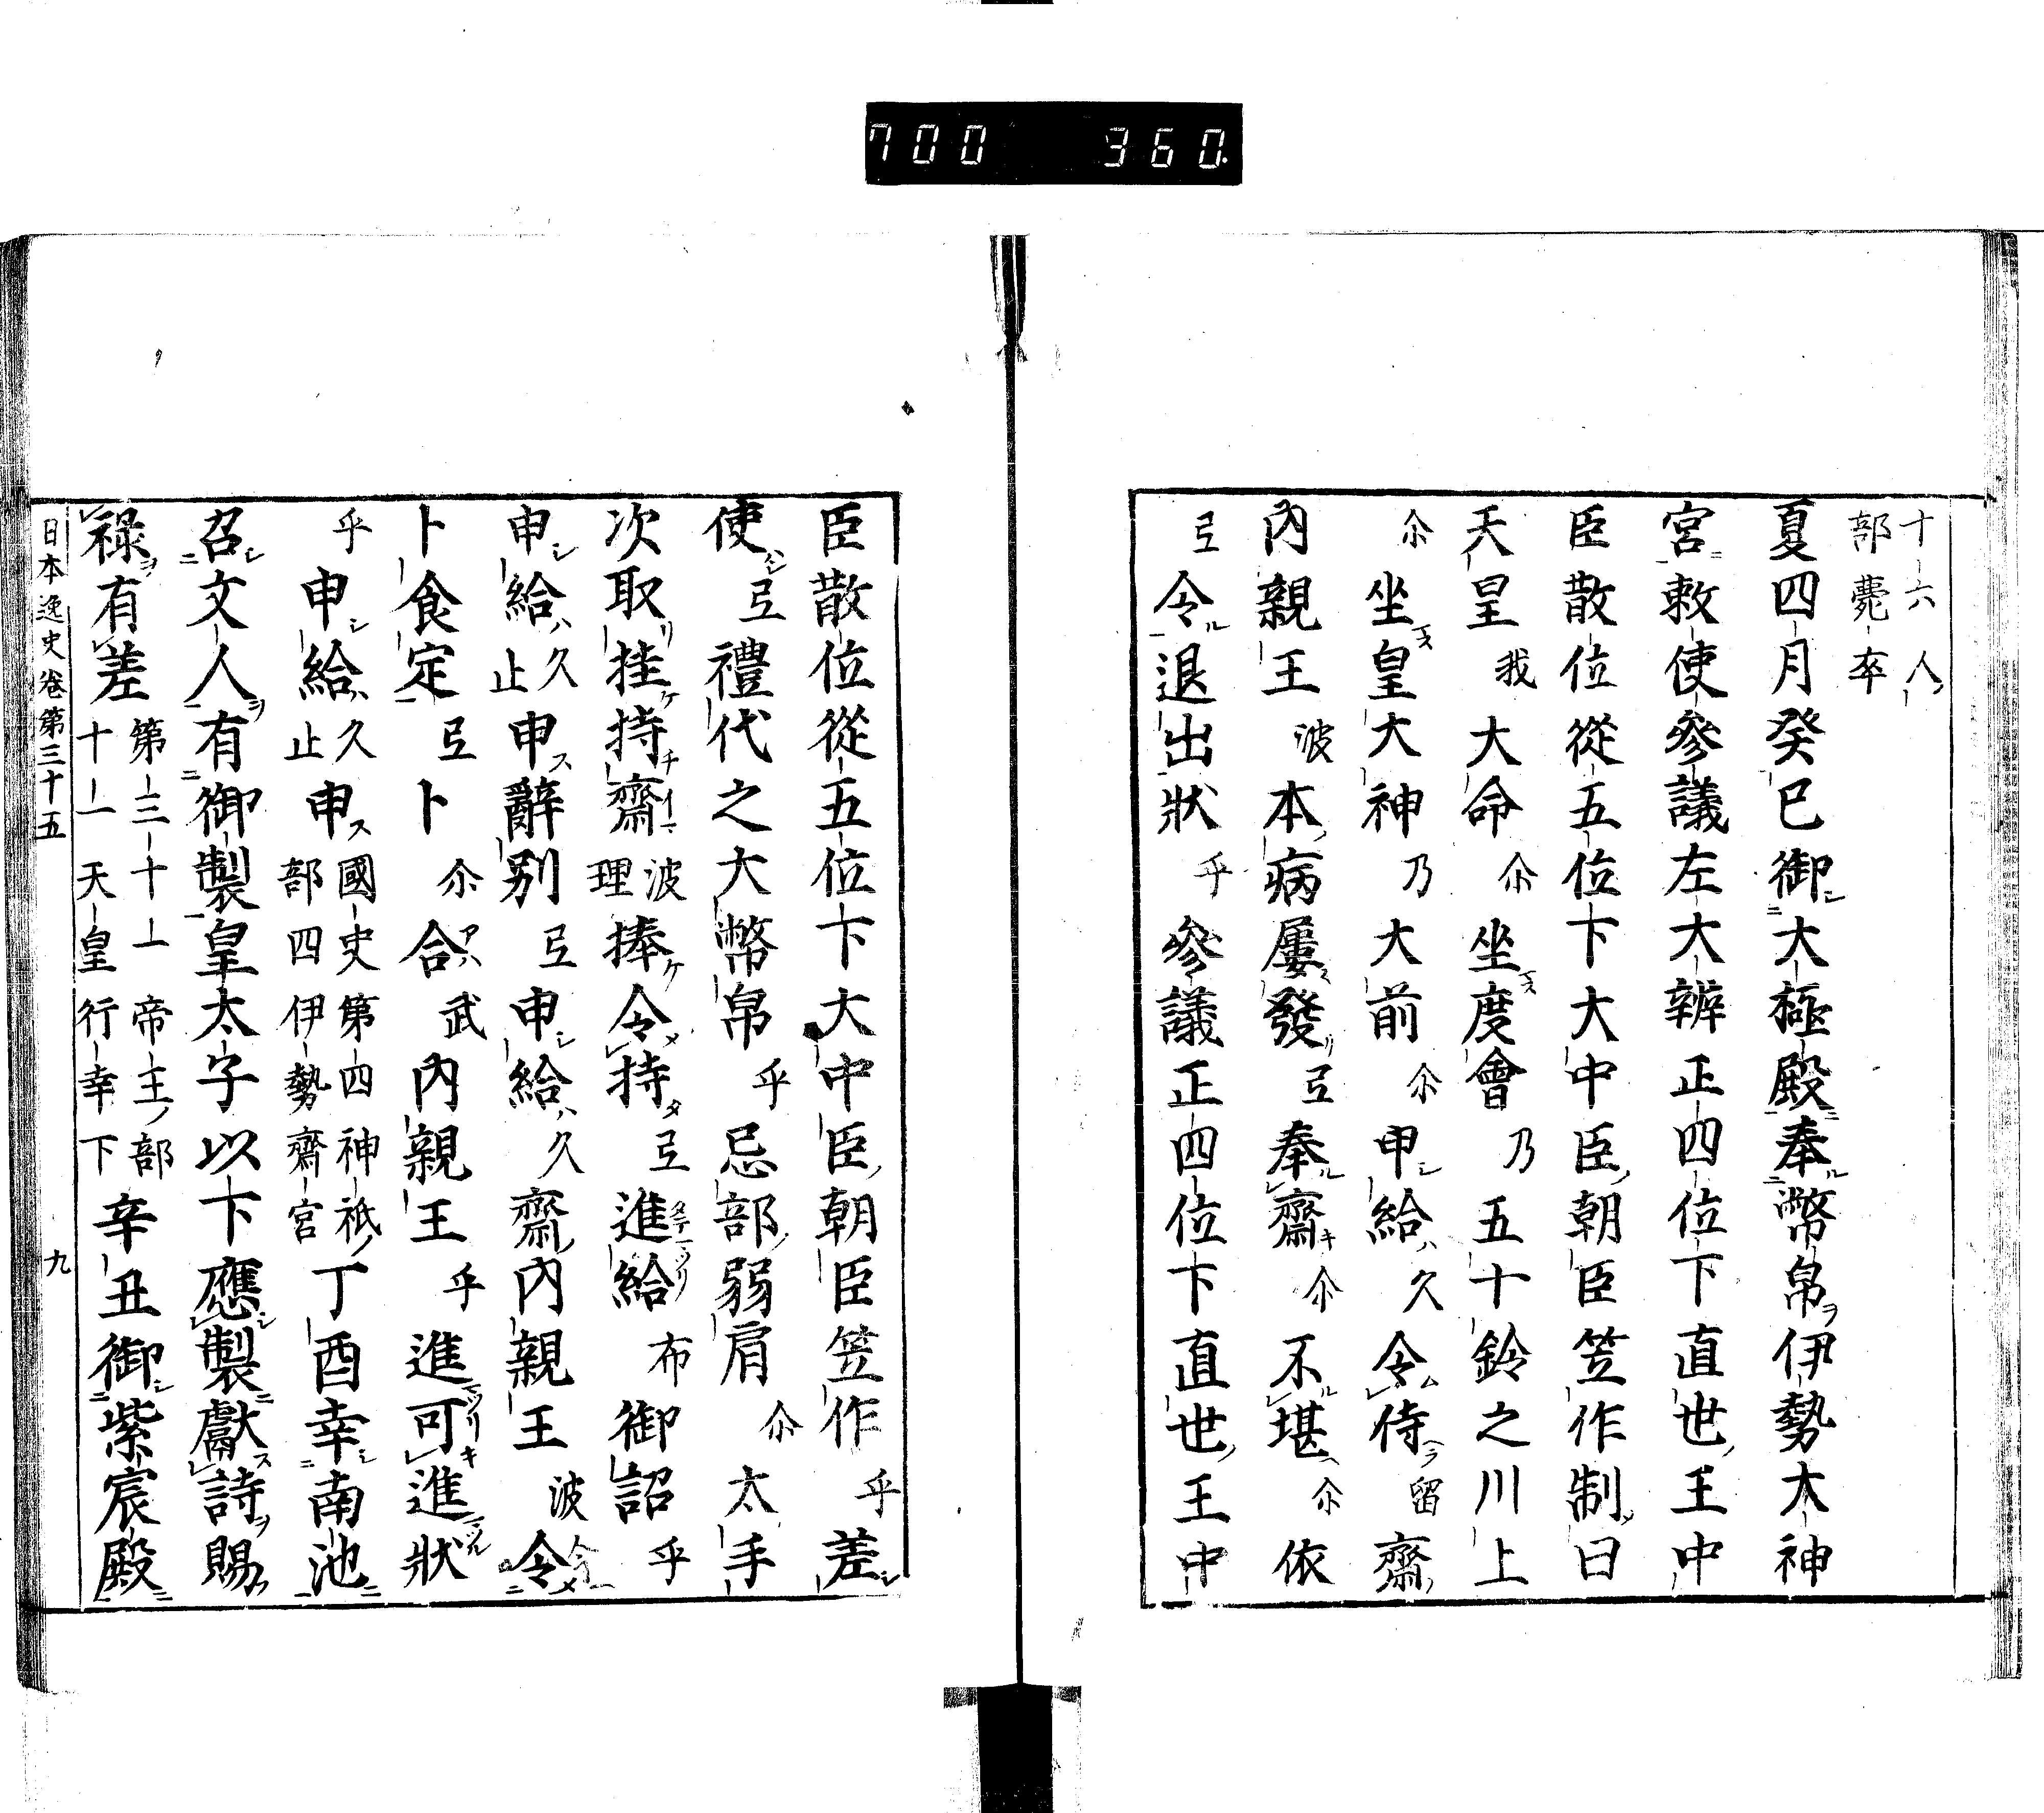 700 360.
十六人
部薨卒
夏四月癸巳御大極殿奉幣帛伊勢大神
宮敕使參議左大辨正四位下直世王中
臣散位從五位下大中臣朝臣笠作制曰
天皇我大命尒坐度會乃五十鈴之川上
尒坐皇大神乃大前尒申給久令侍留齋
內親王波本病屢發弖奉齋尒不堪尒依
弖令退出狀乎參議正四位下直世王中
臣散位從五位下大中臣朝臣笠作乎差
使弖禮代之大幣帛乎忌部弱肩尒太手
次取挂持齋波理捧令持弖進給布御詔乎
申給久止申辭別弖申給久齋內親王波令
卜食定弖卜尒合武內親王乎進可進狀
乎申給久止申國史第四神祇部四伊勢齋宮丁酉幸南池
召文人有御製皇太子以下應製獻詩賜
祿有差第三十一帝王部十一天皇行幸下辛丑御紫宸殿
日本逸史卷第三十五 九